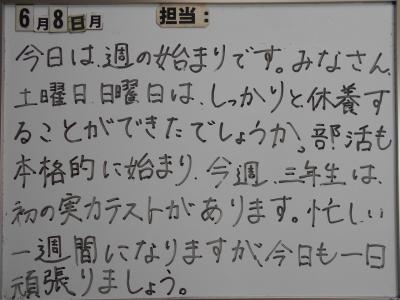 6月8日月 担当:
今日は、週の始まりです。みなさん、
土曜日、日曜日は、しっかりと、休養す
ることができたでしょうか。部活も
本格的に始まり、今週、三年生は、
初の実力テストがあります。忙しい
一週間になりますが、今日も一日
頑張りましょう。